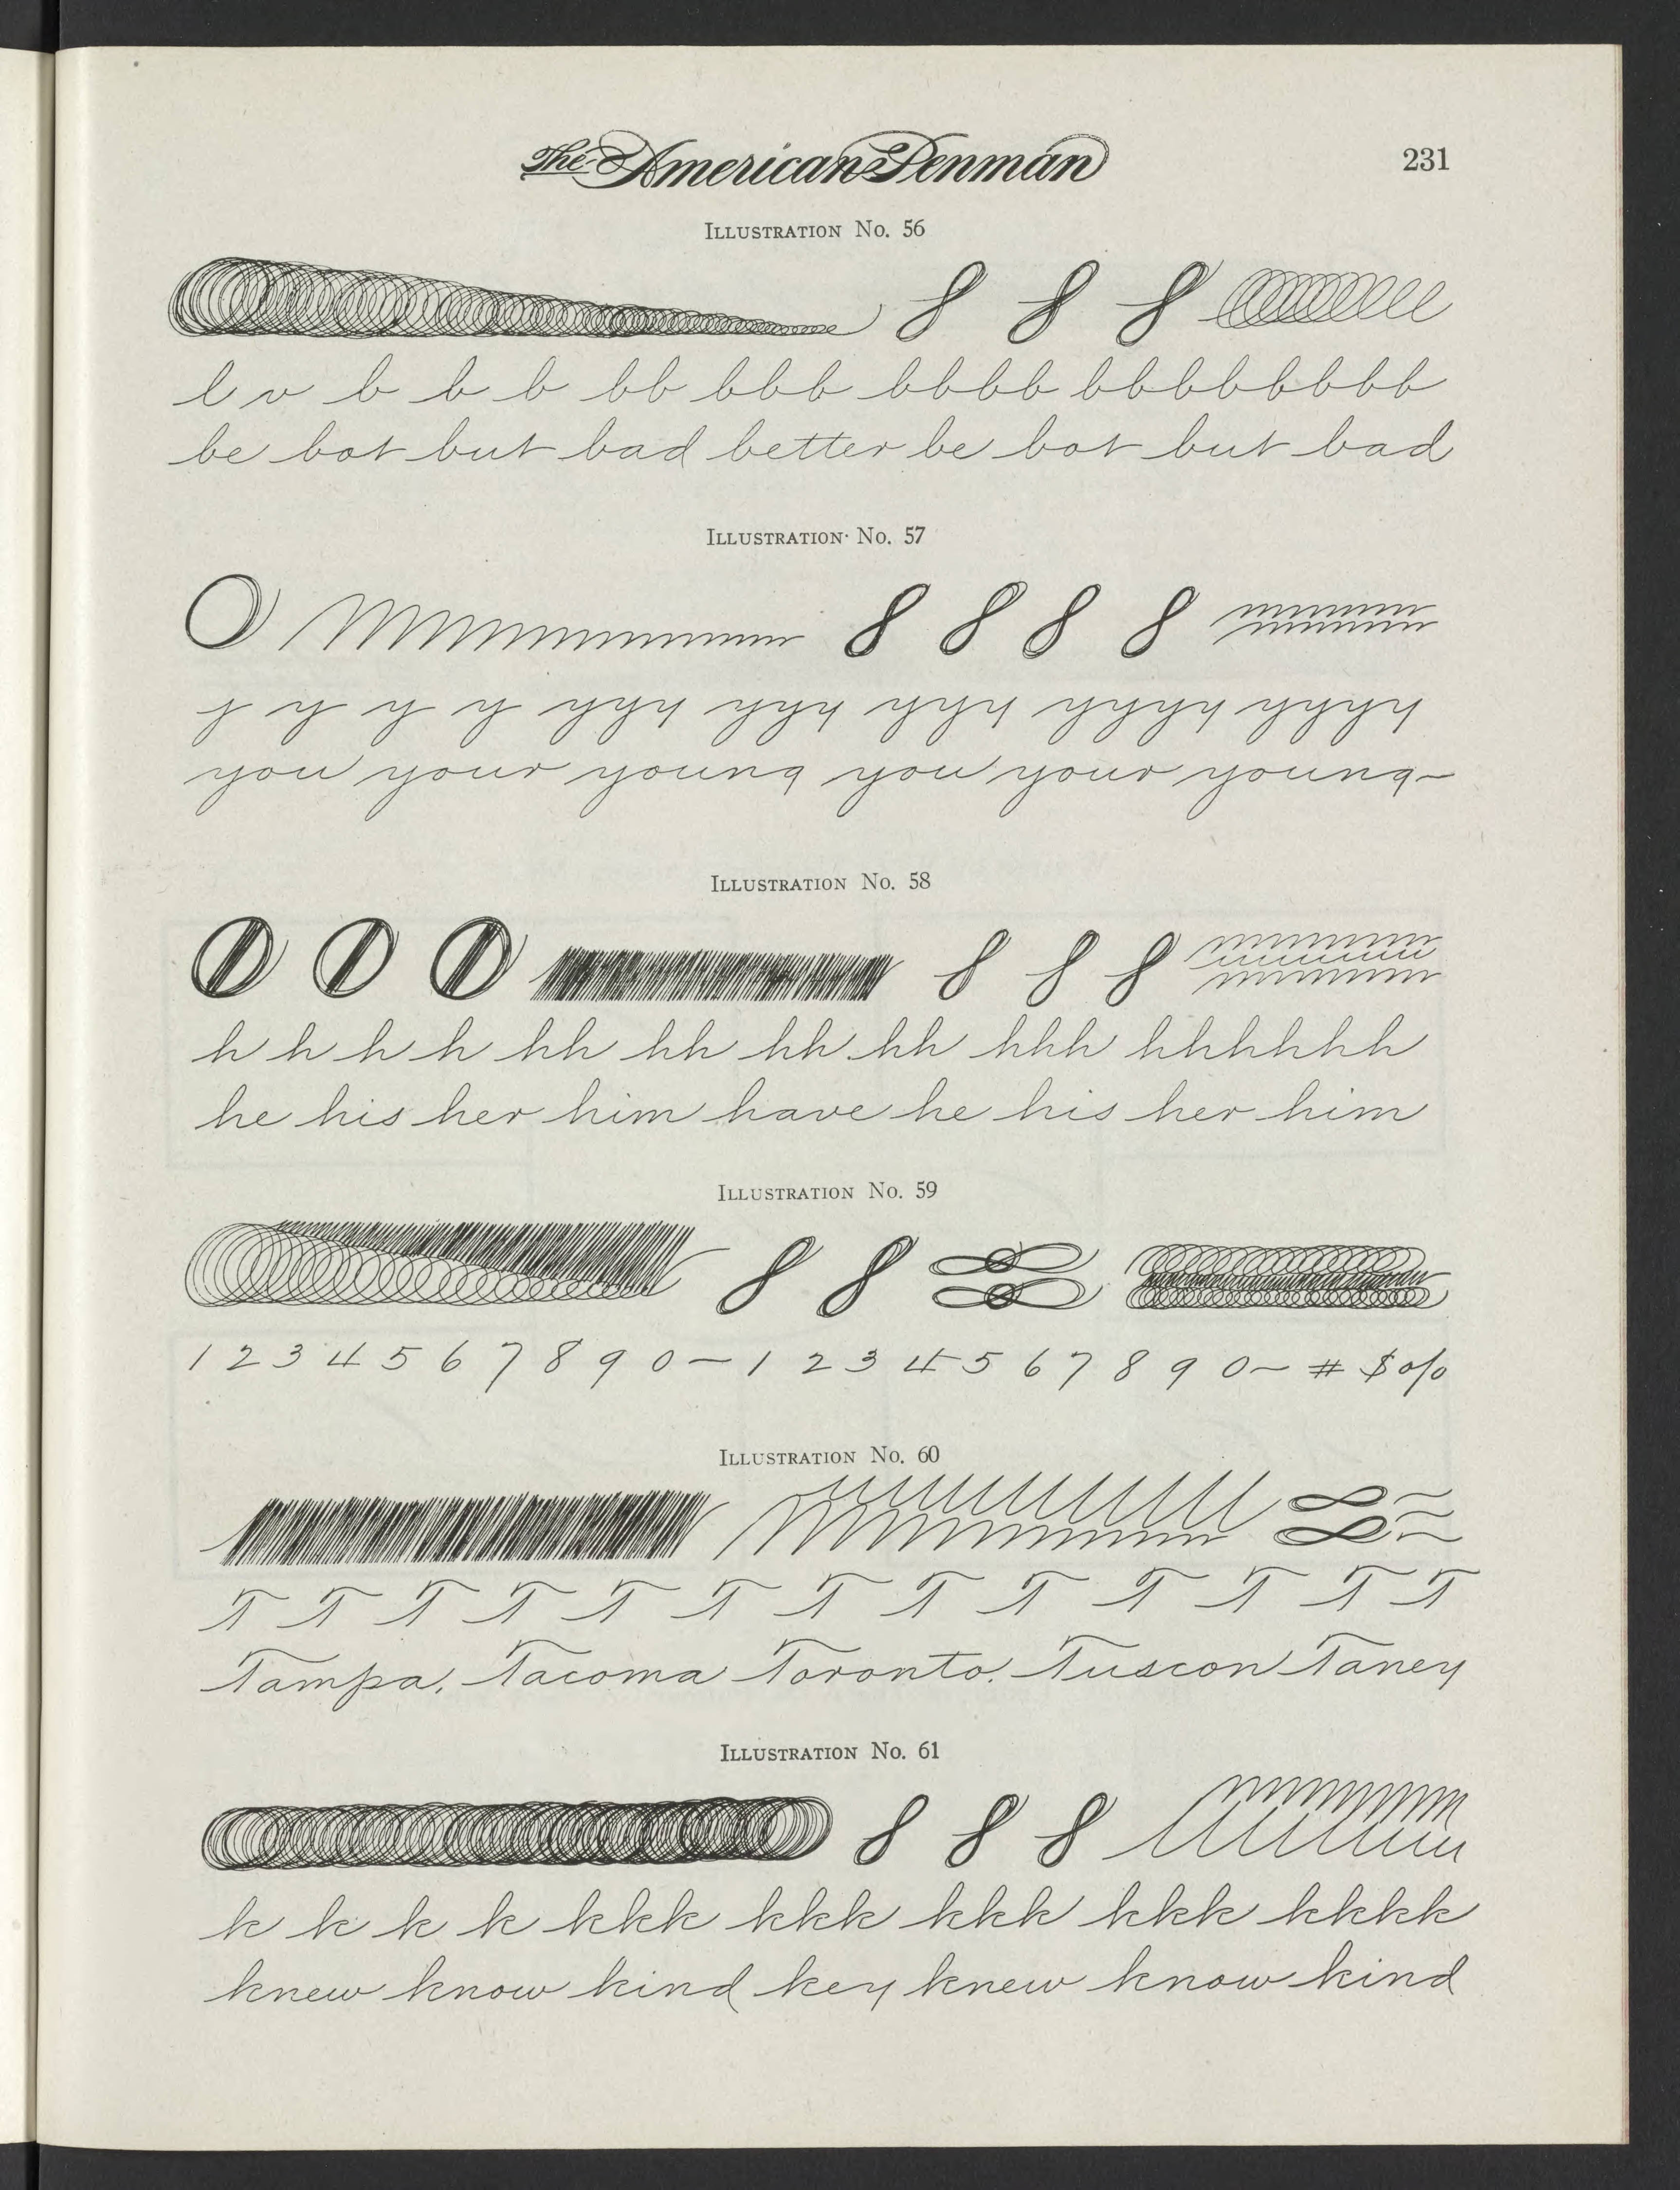 The American Penman
231
Illustration No. 56
8 8 8
l v b b b bb bbb bbbb bbbbbbbb
be bot but bad better be bot but bad
Illustration No. 57
8 8 8 8
j y y y yyy yyy yyy yyyy yyyy
you your young you your young
Illustration No. 58
8 8 8
h h h h hh hh hh hh hhh hhhhhh
he his her him have he his her him
Illustration No. 59
8 8
1 2 3 4 5 6 7 8 9 0 — 1 2 3 4 5 6 7 8 9 0 — # $ %
Illustration No. 60
T T T T T T T T T T T T T
Tampa, Tacoma Toronto. Tuscon Taney
Illustration No. 61
8 8 8
k k k k kkk kkk kkk kkk kkkk
knew know kind key knew know kind